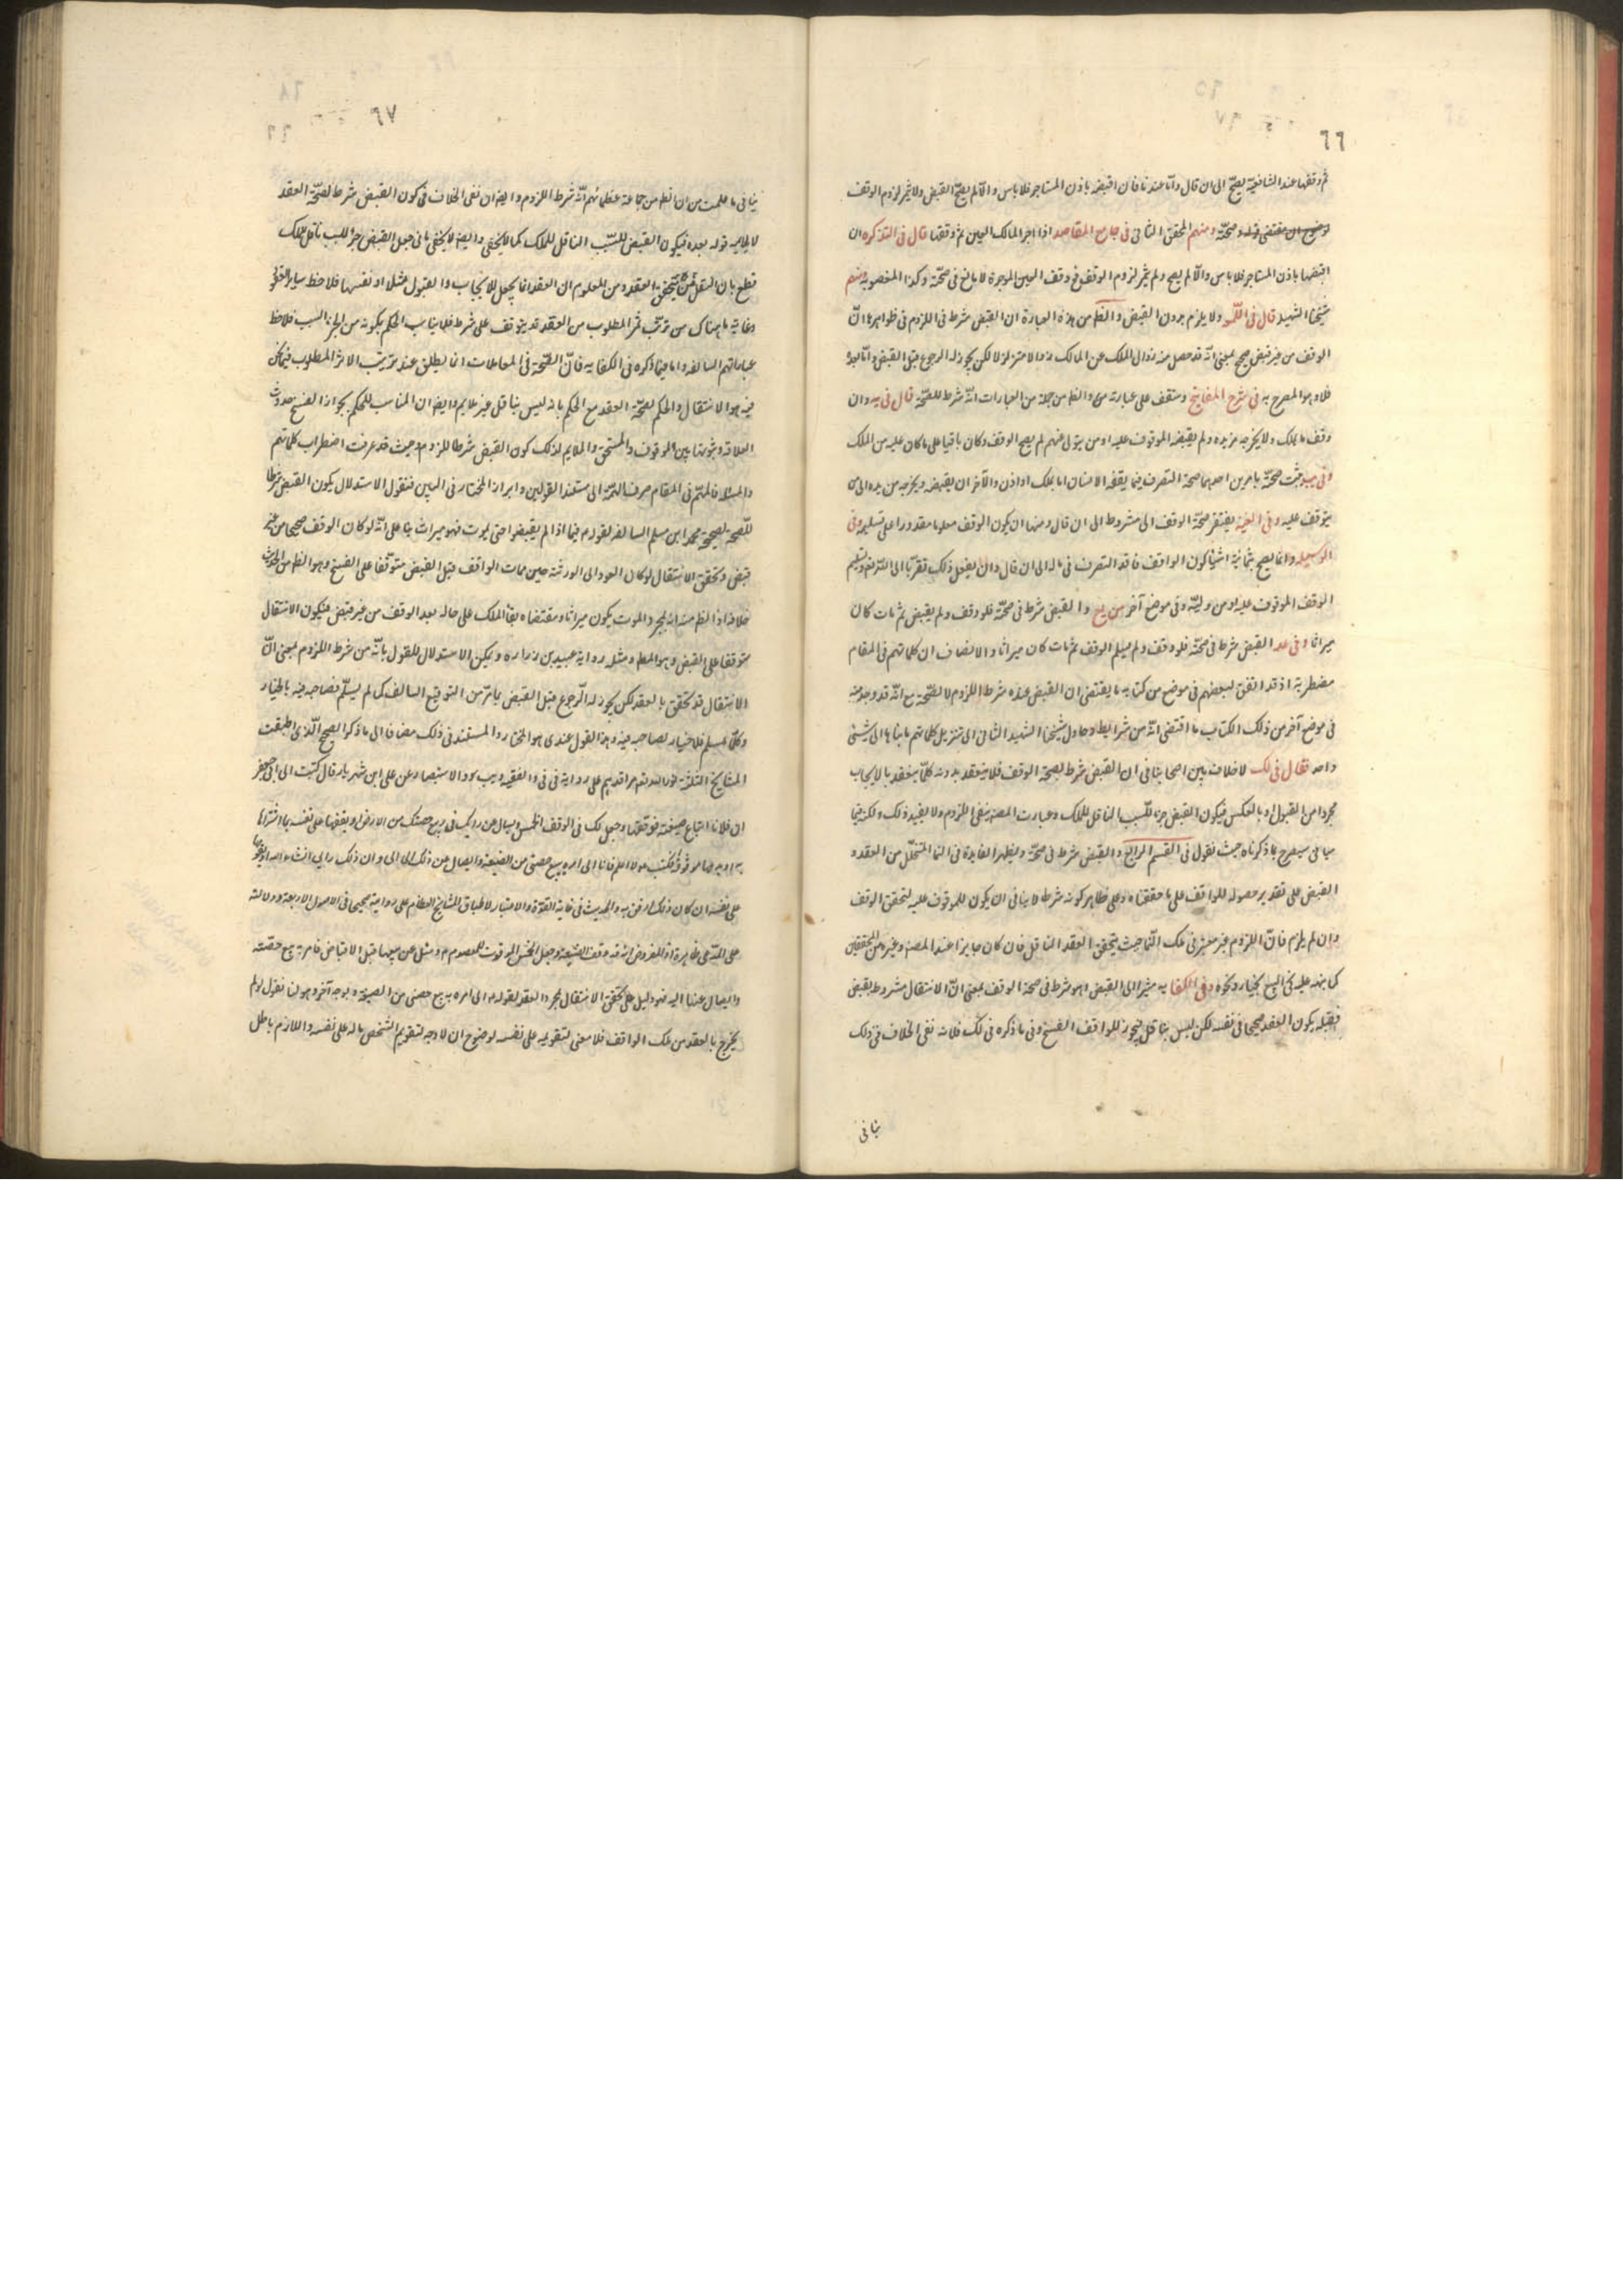 ٦٦
ثم وقفها عند الشافعية يصحّ الى ان قال وامّا عندنا فان اقبضه باذن المستاجر فلا باس والّا لم يصحّ القبض ولا يثمر لزوم الوقف
لوضوح ان مقتضى قوله وصحّته ومنهم المحقق الثانى فى جامع المقاصد اذا اجر المالك العين ثم وقفها قال فى التذكره ان
اقبضها باذن المستاجر فلا باس والّا لم يصح ولم يثمر لزوم الوقف فوقف العين الموجرة لا مانع فى صحّته وكذا المغصوبة ومنهم
شيخنا الشهيد قال فى اللّمعة ولا يلزم بدون القبض والظ من هذه العبارة ان القبض شرط فى اللزوم فى ظواهرها انّ
الوقف من غير قبض صحيح بمعنى انّه قد حصل منه زوال الملك عن المالك زوالا متزلزلا لكن يجوز له الرجوع قبل القبض وامّا بعده
فلا وهو المصرح به فى شرح المفاتيح وستقف على عبارته والظ من جملة من العبارات انّه شرط للصّحّة قال فى يه وان
وقف ما يملك ولا يخرجه من يده ولم يقبضه الموقوف عليه او من يتولى عنهم لم يصح الوقف وكان باقيا على ما كان عليه من الملك
وفى يثبت صحّته بامرين احدهما صحة التصرف فيما يقفه الانسان اما بملك او اذن والآخر ان يقبضه ويخرجه من يده الى من
يتوقف عليه وفى الغنية يفتقر صحّة الوقف الى شروط الى ان قال ومنها ان يكون الوقف معلوما مقدورا على تسليمه وفى
الوسيلة وانما يصح بثمانية اشيأ كون الواقف نافذ التصرف فى ماله الى ان قال وان يفعل ذلك تقرّبا الى اللّه تعالى وتسليم
الوقف الموقوف عليه او من وليّه وفى موضع آخر من يع والقبض شرط فى صحّته فلو وقف ولم يقبض ثم مات كان
ميراثا وفى عد القبض شرط فى صحّته فلو وقف ولم يسلم الوقف ثم مات كان ميراثا والانصاف ان كلماتهم فى المقام
مضطربة اذ قد اتفق لبعضهم فى موضع من كتابه ما يقتضى ان القبض عنده شرط اللزوم لا الصّحّة مع انّه قد وجد منه
فى موضع آخر من ذلك الكتاب ما اقتضى انّه من شرايط وحاول شيخنا الشهيد الثانى الى تنزيل كلماتهم باثباتها الى شيئى
واحد فقال فى لك لا خلاف بين اصحابنا فى ان القبض شرط لصحة الوقف فلا ينعقد بدونه كلّا ينعقد بالايجاب
مجردا من القبول او بالعكس فيكون القبض جزء السّبب الناقل للملك وعبارت المصنه بنفى اللزوم ولا يفيد ذلك ولكنه فيما
سياتى سيصرح بما ذكرناه حيث نقول فى القسم الرابع والقبض شرط فى صحّته ويظهر الفايدة فى النما المتخلّل من العقد و
القبض على تقدير حصوله للواقف على ما حققناه وعلى ظاهر كونه شرط لا ينافى ان يكون للموقوف عليه لتحقق الوقف
وان لم يلزم فانّ اللزوم غير معتبر فى ملك النّما حيث يتحقق العقد الناقل فان كان جايزا عند المصنه وغيره من المحققين
كما بنه عليه فى البيع بخيار ونحوه وفى الكفايه مشيرا الى القبض وهو شرط فى صحة الوقف بمعنى انّ الانتقال مشروط بقبض
فقبله يكون العقد صحيحا فى نفسه لكن ليس بناقل فيجوز للواقف الفسخ وفى ما ذكره فى لك فلانه نفى الخلاف فى ذلك
ينافى
٦٧
ينافى ما علمت من ان الظ من جماعة عظمائهم انّه شرط اللزوم وايضا ان نفى الخلاف فى كون القبض شرط لصحّة العقد
لا يلايمه قوله بعده فيكون القبض للسّبب الناقل للملك كما لا يخفى وايضا لا يخفى ما فى جعل القبض جزءا للسبب ناقل للملك
قطع بان النقل يتحقق بالعقد ومن المعلوم ان العقد انما يجعل للايجاب والقبول مثلا او نفسها فلاحظ ساير العقود
وغاية ما هناك من ترتّب ثمر المطلوب من العقد قد يتوقف على شرط فلا يناسب الحكم بكونه من الجزء السبب فلاحظ
عباراتهم السالفه واما فيما ذكره فى الكفايه فانّ الصّحّة فى المعاملات انما يطلق عند ترتّب الاثر المطلوب فيما نحن
فيه هو الانتقال والحكم لصحّة العقد مع الحكم بانه ليس بناقل غير ملايم وايضا ان المناسب للحكم بجواز الفسخ حدوث
العلاقة وثبوتها بين الموقوف والمستحق والملايم لذلك كون القبض شرطا للزوم وحيث قد عرفت اضطراب كلماتهم
والمسئلة فالمهّم فى المقام صرف الهمّة الى مستند القولين وابراز المختار فى البين فنقول الاستدلال بكون القبض شرطا
للّصّحة لصحيحة محمد ابن مسلم السالفة لقوله م فيما اذا لم يقبضوا حتى يموت فهو ميراث بنا على انّه لو كان الوقف صحيحا من غير
قبض وتحقق الانتقال لو كان العود الى الورثة حين ممات الواقف قبل القبض متوّقفا على الفسخ وهو الظ من الحديث
خلافه اذ الظ منه انه بمجرد الموت يكون ميراثا ومقتضاه بقأ الملك على حاله بعد الوقف من غير قبض فيكون الانتقال
متوقفا على القبض وهو المط ومثله رواية عبيد بن زراره ويمكن الاستدلال للقول بانّه من شرط اللزوم بمعنى انّ
الانتقال قد تحقق بالعقد لكن يجوز له الّرجوع قبل القبض بما مرّ من التوقيع السالف كل ما لم يسلّم فصاحبه فيه بالخيار
وكلّما سلم فلا خيار لصاحبه فيه وهذا القول عندى هو المختار والمستند فى ذلك مضافا الى ما ذكر الصحيح الّذى اطبقت
المشايخ الثلثة نور اللّه مراقدهم على رواية فى فى والفقيه ويب والاستبصار عن على ابن مهزيار قال كتبت الى ابى جعفر
ان فلانا ابتاع ضيعة فوقفها وجعل لك فى الوقف الخمس ويسال عن رايك فى بيع حصتك من الارض او يقفها على نفسه بما اشتراها
به او يدعها موقوفة فكتب م اعلم فلانا انى امره ببيع حصتى من الضيعة وايصال ثمن ذلك الى وان ذلك رايى انشاء اللّه او يقومها
على نفسه ان كان ذلك ارفق به والحديث فى غاية القوة والاعتبار لاطباق المشايخ العظام على روايته صحيحا فى الاصول الاربعة ودلالته
على المدّعى ظاهرة اذ المفروض انه قد وقف الضيعة وجعل الخمس الموقوف للمعصوم م وسئل عن بيعها قبل الاقباض فامر به بيع حصّته
وايصال ثمنها اليه فهو دليل على تحقق الانتقال بمجرد العقد لقوله م انى امره ببيع حصتى من الضيعة وبوجه آخر وهو لنا نقول لو لم
يخرج بالعقد من ملك الواقف فلا معنى لتقويمه على نفسه لوضوح ان لا وجه لتقويم الشخص ماله على نفسه واللازم باطل